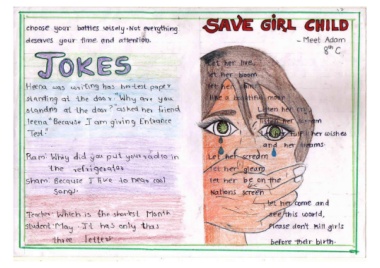 choose your battles wisely. Not everything
deserves your time and attention.
JOKES
Heena was writing has her test paper
standing at the door. "Why are you
standing at the door" asked her friend
Teena." Because I am giving Entrance
Test."
Ram: Why did you put your radio in
the refrigerator
Sham: Because I live to hear cool
songs.
Teacher: Which is the shortest Month
Student: May. It has only thas
three letters
SAVE GIRL CHILD
- Meet Adam
8th C.
Let her live,
let her bloom
let her
like a beautiful moon
her cry
her scream
her wishes
and her dreams.
Let her scream
Let her gleam
let her be on the
Nations screen
let her come and
see this world,
Please don't kill girls
before their birth.